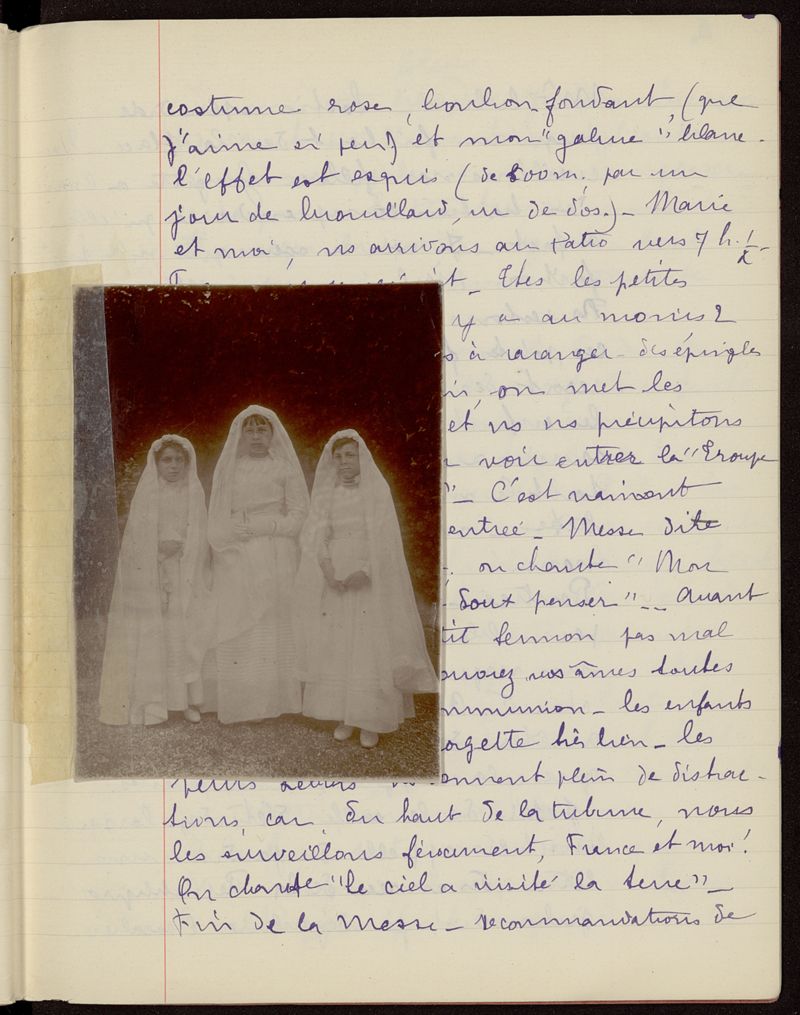 costume rose, bonbon fondant, (que
j'aime si peu) et mon "galure" blanc.
l'effet est exquis (de 800m, par un
jour de brouillard, vu de dos.) - Marie
et moi, ns arrivons au Patro vers 7 h. 1/2 -
- Ttes les petites
y a au moins 2
à rarranger - des épingles
on met les
et ns ns précipitons
voir entrer la "Troupe
" - C'est vraiment
entrée - Messe dite
on chante "Mon
doux penser" -- Avant
sermon pas mal
vos âmes toutes
- les enfants
très bien - les
petits plein de distrac-
tions, car, du haut de la tribune, nous
les surveillons férocement, France et moi!
On chante "le ciel a visité la terre" -
Fin de la Messe - recommandations de